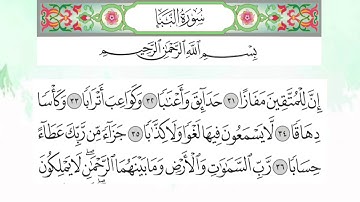 سُورَةُ النَّبَإِ
بِسْمِ ٱللَّهِ ٱلرَّحْمَٰنِ ٱلرَّحِيمِ
إِنَّ لِلْمُتَّقِينَ مَفَازًا ٣١ حَدَآئِقَ وَأَعْنَٰبًا ٣٢ وَكَوَاعِبَ أَتْرَابًا ٣٣ وَكَأْسًا
دِهَاقًا ٣٤ لَّا يَسْمَعُونَ فِيهَا لَغْوًا وَلَا كِذَّٰبًا ٣٥ جَزَآءً مِّن رَّبِّكَ عَطَآءً
حِسَابًا ٣٦ رَّبِّ ٱلسَّمَٰوَٰتِ وَٱلْأَرْضِ وَمَا بَيْنَهُمَا ٱلرَّحْمَٰنِ ۖ لَا يَمْلِكُونَ